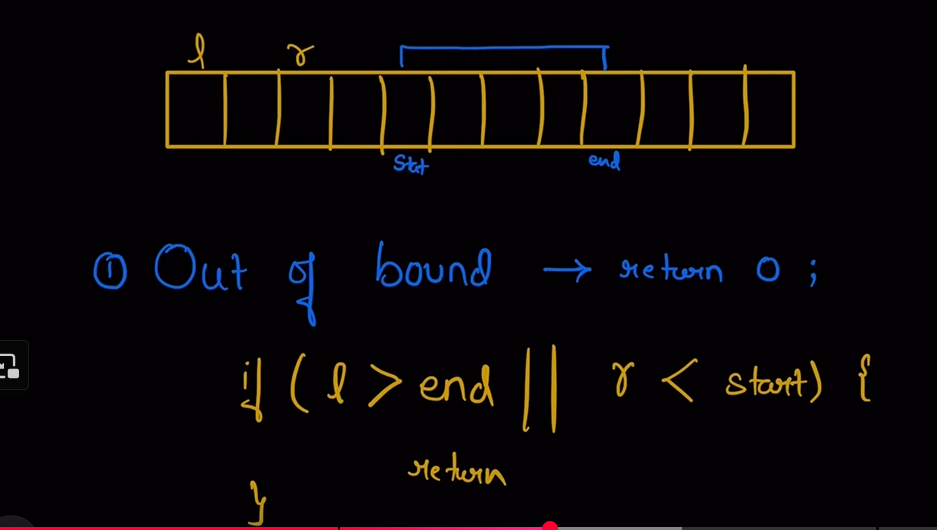 l r
start end
① Out of bound → return 0 ;
if ( l > end || r < start) {
return
}